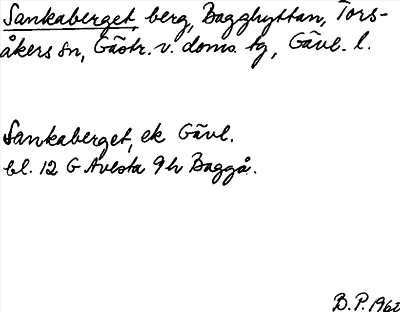 Sankaberget berg, Bagghyttan, Tors-
åkers sn, Gästr. v. doms. tg, Gävl. l.
Sankaberget, ek Gävl.
bl. 12 G Avesta 9 h Baggå.
B.P. 1960